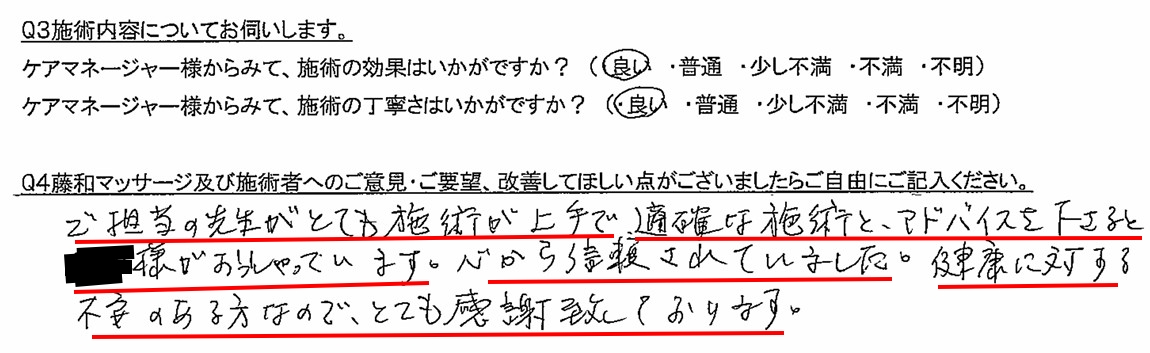 Q3施術内容についてお伺いします。
ケアマネージャー様からみて、施術の効果はいかがですか？（・良い ・普通 ・少し不満 ・不満 ・不明）
ケアマネージャー様からみて、施術の丁寧さはいかがですか？（・良い ・普通 ・少し不満 ・不満 ・不明）
Q4藤和マッサージ及び施術者へのご意見・ご要望、改善してほしい点がございましたらご自由にご記入ください。
ご担当の先生がとても施術が上手で適確な施術と、アドバイスを下さると
様がおっしゃっています。心から信頼されていました。健康に対する
不安のある方なので、とても感謝致しております。